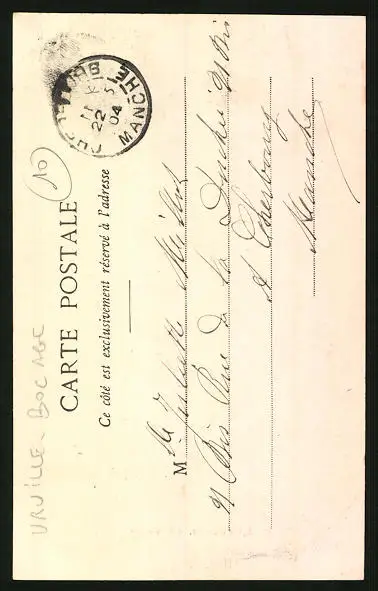 URVILLE - BOCAGE
10
CARTE POSTALE
Ce côté est exclusivement réservé à l'adresse
22
04
MANCHE
M lle Juliette
91 Bis Rue de la Duché 91 Bis
à Cherbourg
Manche